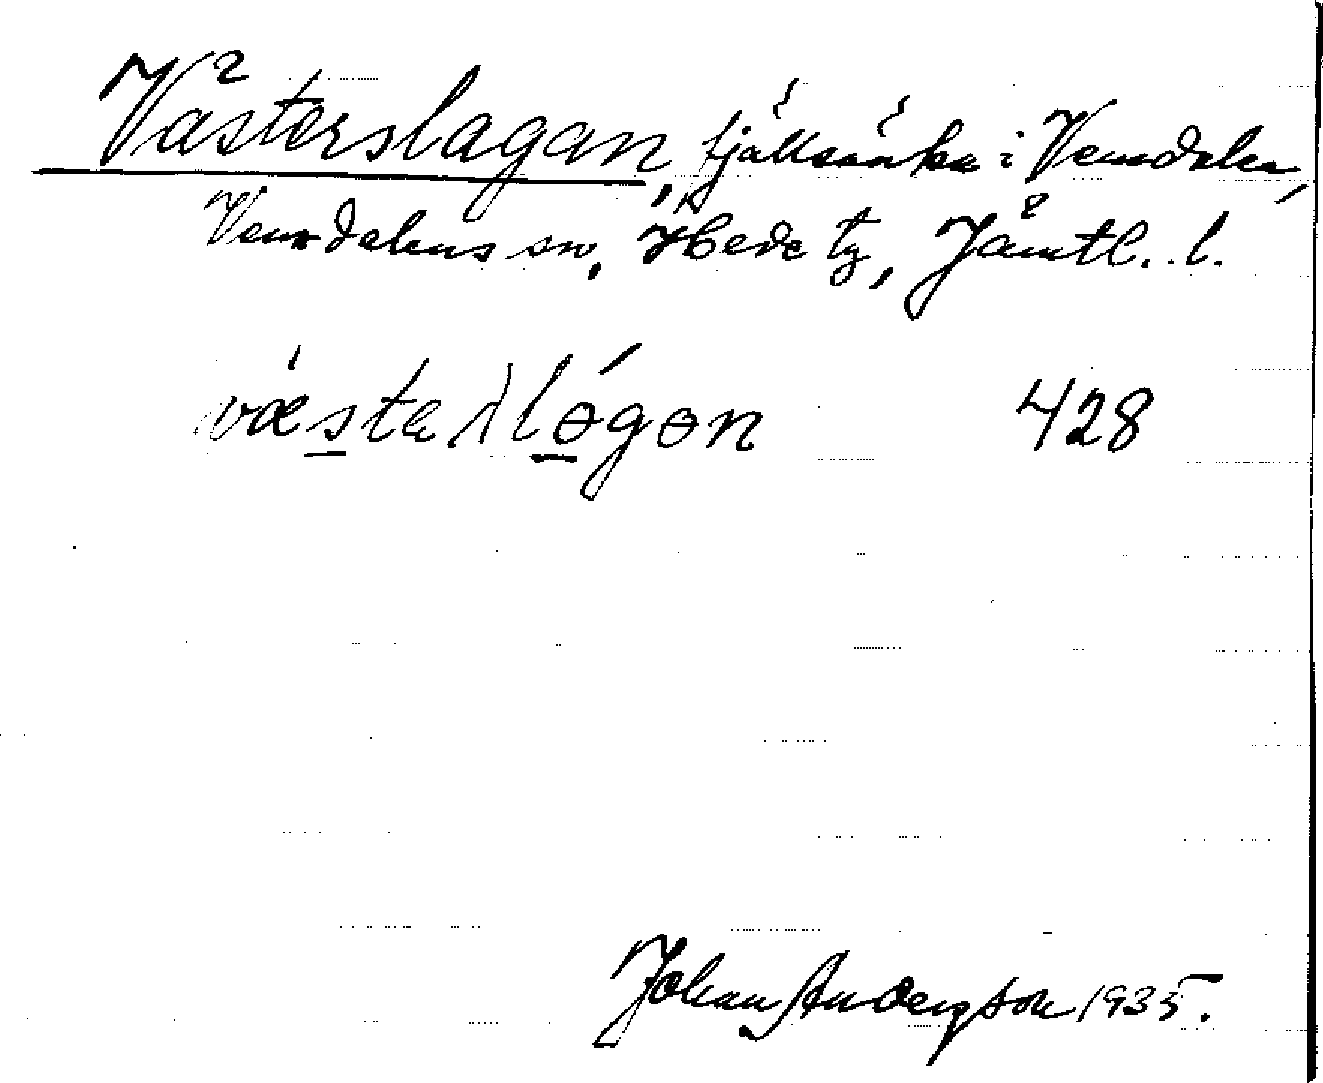 Västerslagan, fjällsänka i Vemdalen,
Vemdalens sn, Hede tg, Jämtl. l.
væsta lögɵn 428
Johan Andersson 1935.